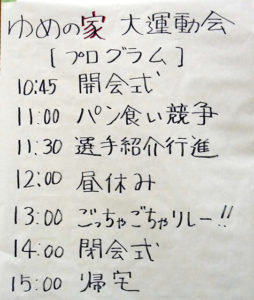 ゆめの家 大運動会
[プログラム]
10:45 開会式
11:00 パン食い競争
11:30 選手紹介行進
12:00 昼休み
13:00 ごっちゃごちゃリレー!!
14:00 閉会式
15:00 帰宅